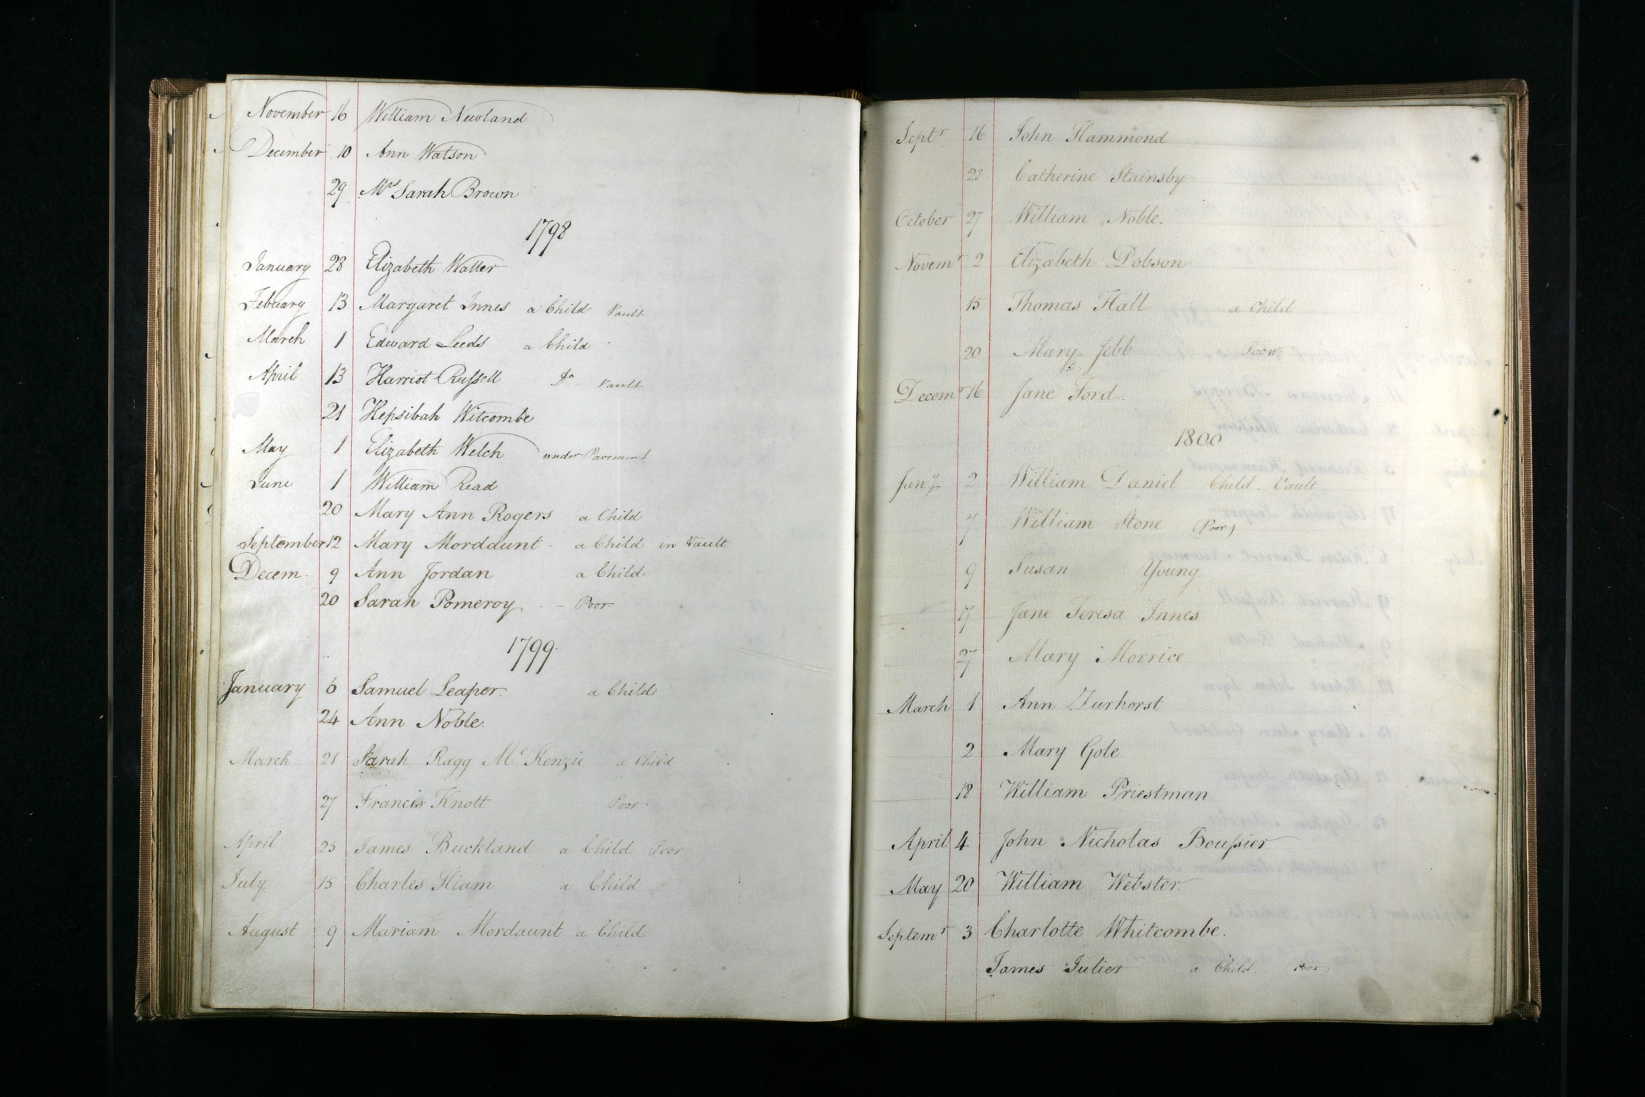 November 16 William Newland
December 10 Ann Watson
29 Mrs Sarah Brown
1798
January 28 Elizabeth Walter
Febuary 13 Margaret Innes a Child Vault
March 1 Edward Leeds a Child
April 13 Harriot Russell Do Vault
21 Hepsibah Witcombe
May 1 Elizabeth Welch under Pavement
June 1 William Read
20 Mary Ann Rogers a Child
September 12 Mary Mordaunt - a Child in Vault
Decem 9 Ann Jordan a Child
20 Sarah Pomeroy - Poor
1799
January 6 Samuel Leaper a Child
24 Ann Noble
March 21 Sarah Ragg Mc Kenzie a Child
27 Francis Knott Poor
April 25 James Buckland a Child Poor
July 15 Charles Hiam a Child
August 9 Mariam Mordaunt a Child
Septr 16 John Hammond
22 Catherine Stainsby
October 27 William Noble.
Novemr 2 Elizabeth Dobson
15 Thomas Hall a Child
20 Mary Jebb Poor
Decemr 16 Jane Ford
1800
Jany 2 William Daniel Child Vault
7 William Stone (Poor)
9 Susan Young
17 Jane Teresa Innes
27 Mary Morrice
March 1 Ann Zurhorst
2 Mary Gole
18 William Priestman
April 4 John Nicholas Boussier
May 20 William Webster
Septemr 3 Charlotte Whitcombe.
James Julier a Child Poor